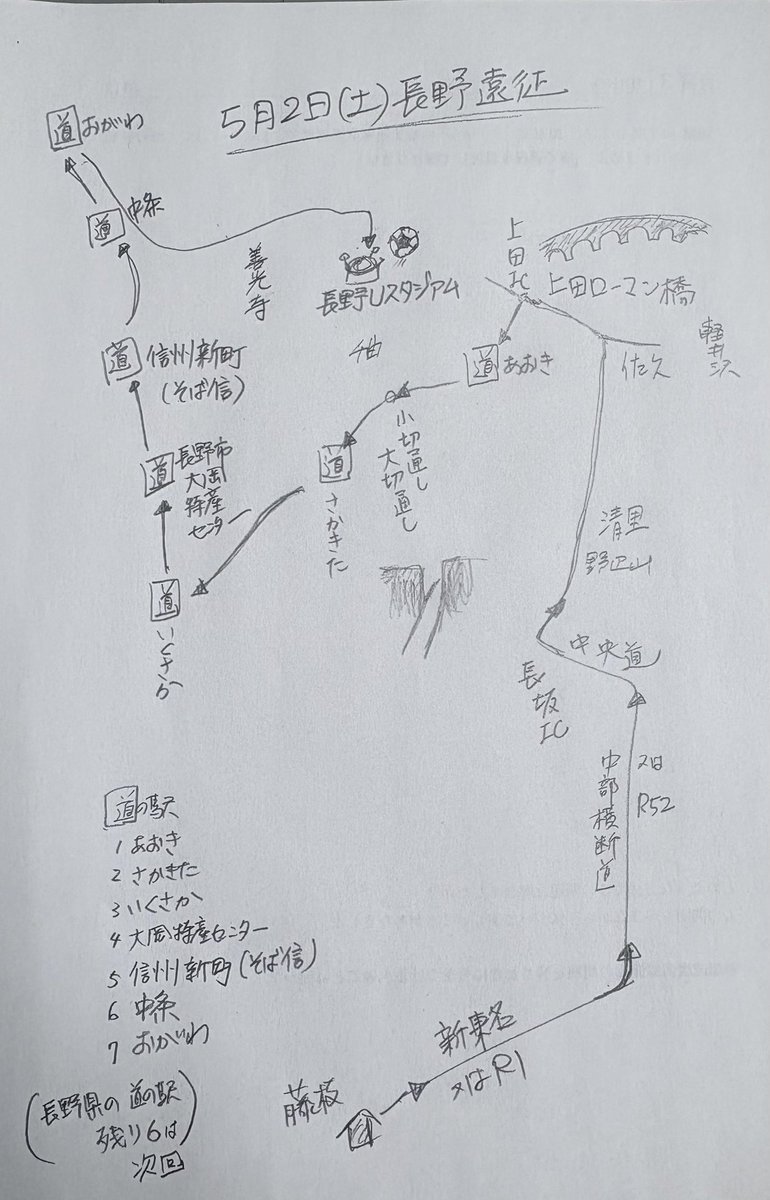 5月2日(土)長野遠征
道 おがわ
道 中条
善光寺
長野Uスタジアム
上田IC
上田ローマン橋
軽井沢
佐久
千曲
道 あおき
小切通し
大切通し
道 信州新町
(そば信)
道 長野市
大岡
特産
センター
道 さかきた
道 いくさか
清里
野辺山
中央道
長坂IC
中部横断道
又は
R52
新東名
又はR1
藤枝
道の駅
1 あおき
2 さかきた
3 いくさか
4 大岡特産センター
5 信州新町(そば信)
6 中条
7 おがわ
(長野県の道の駅
残り6は
次回)